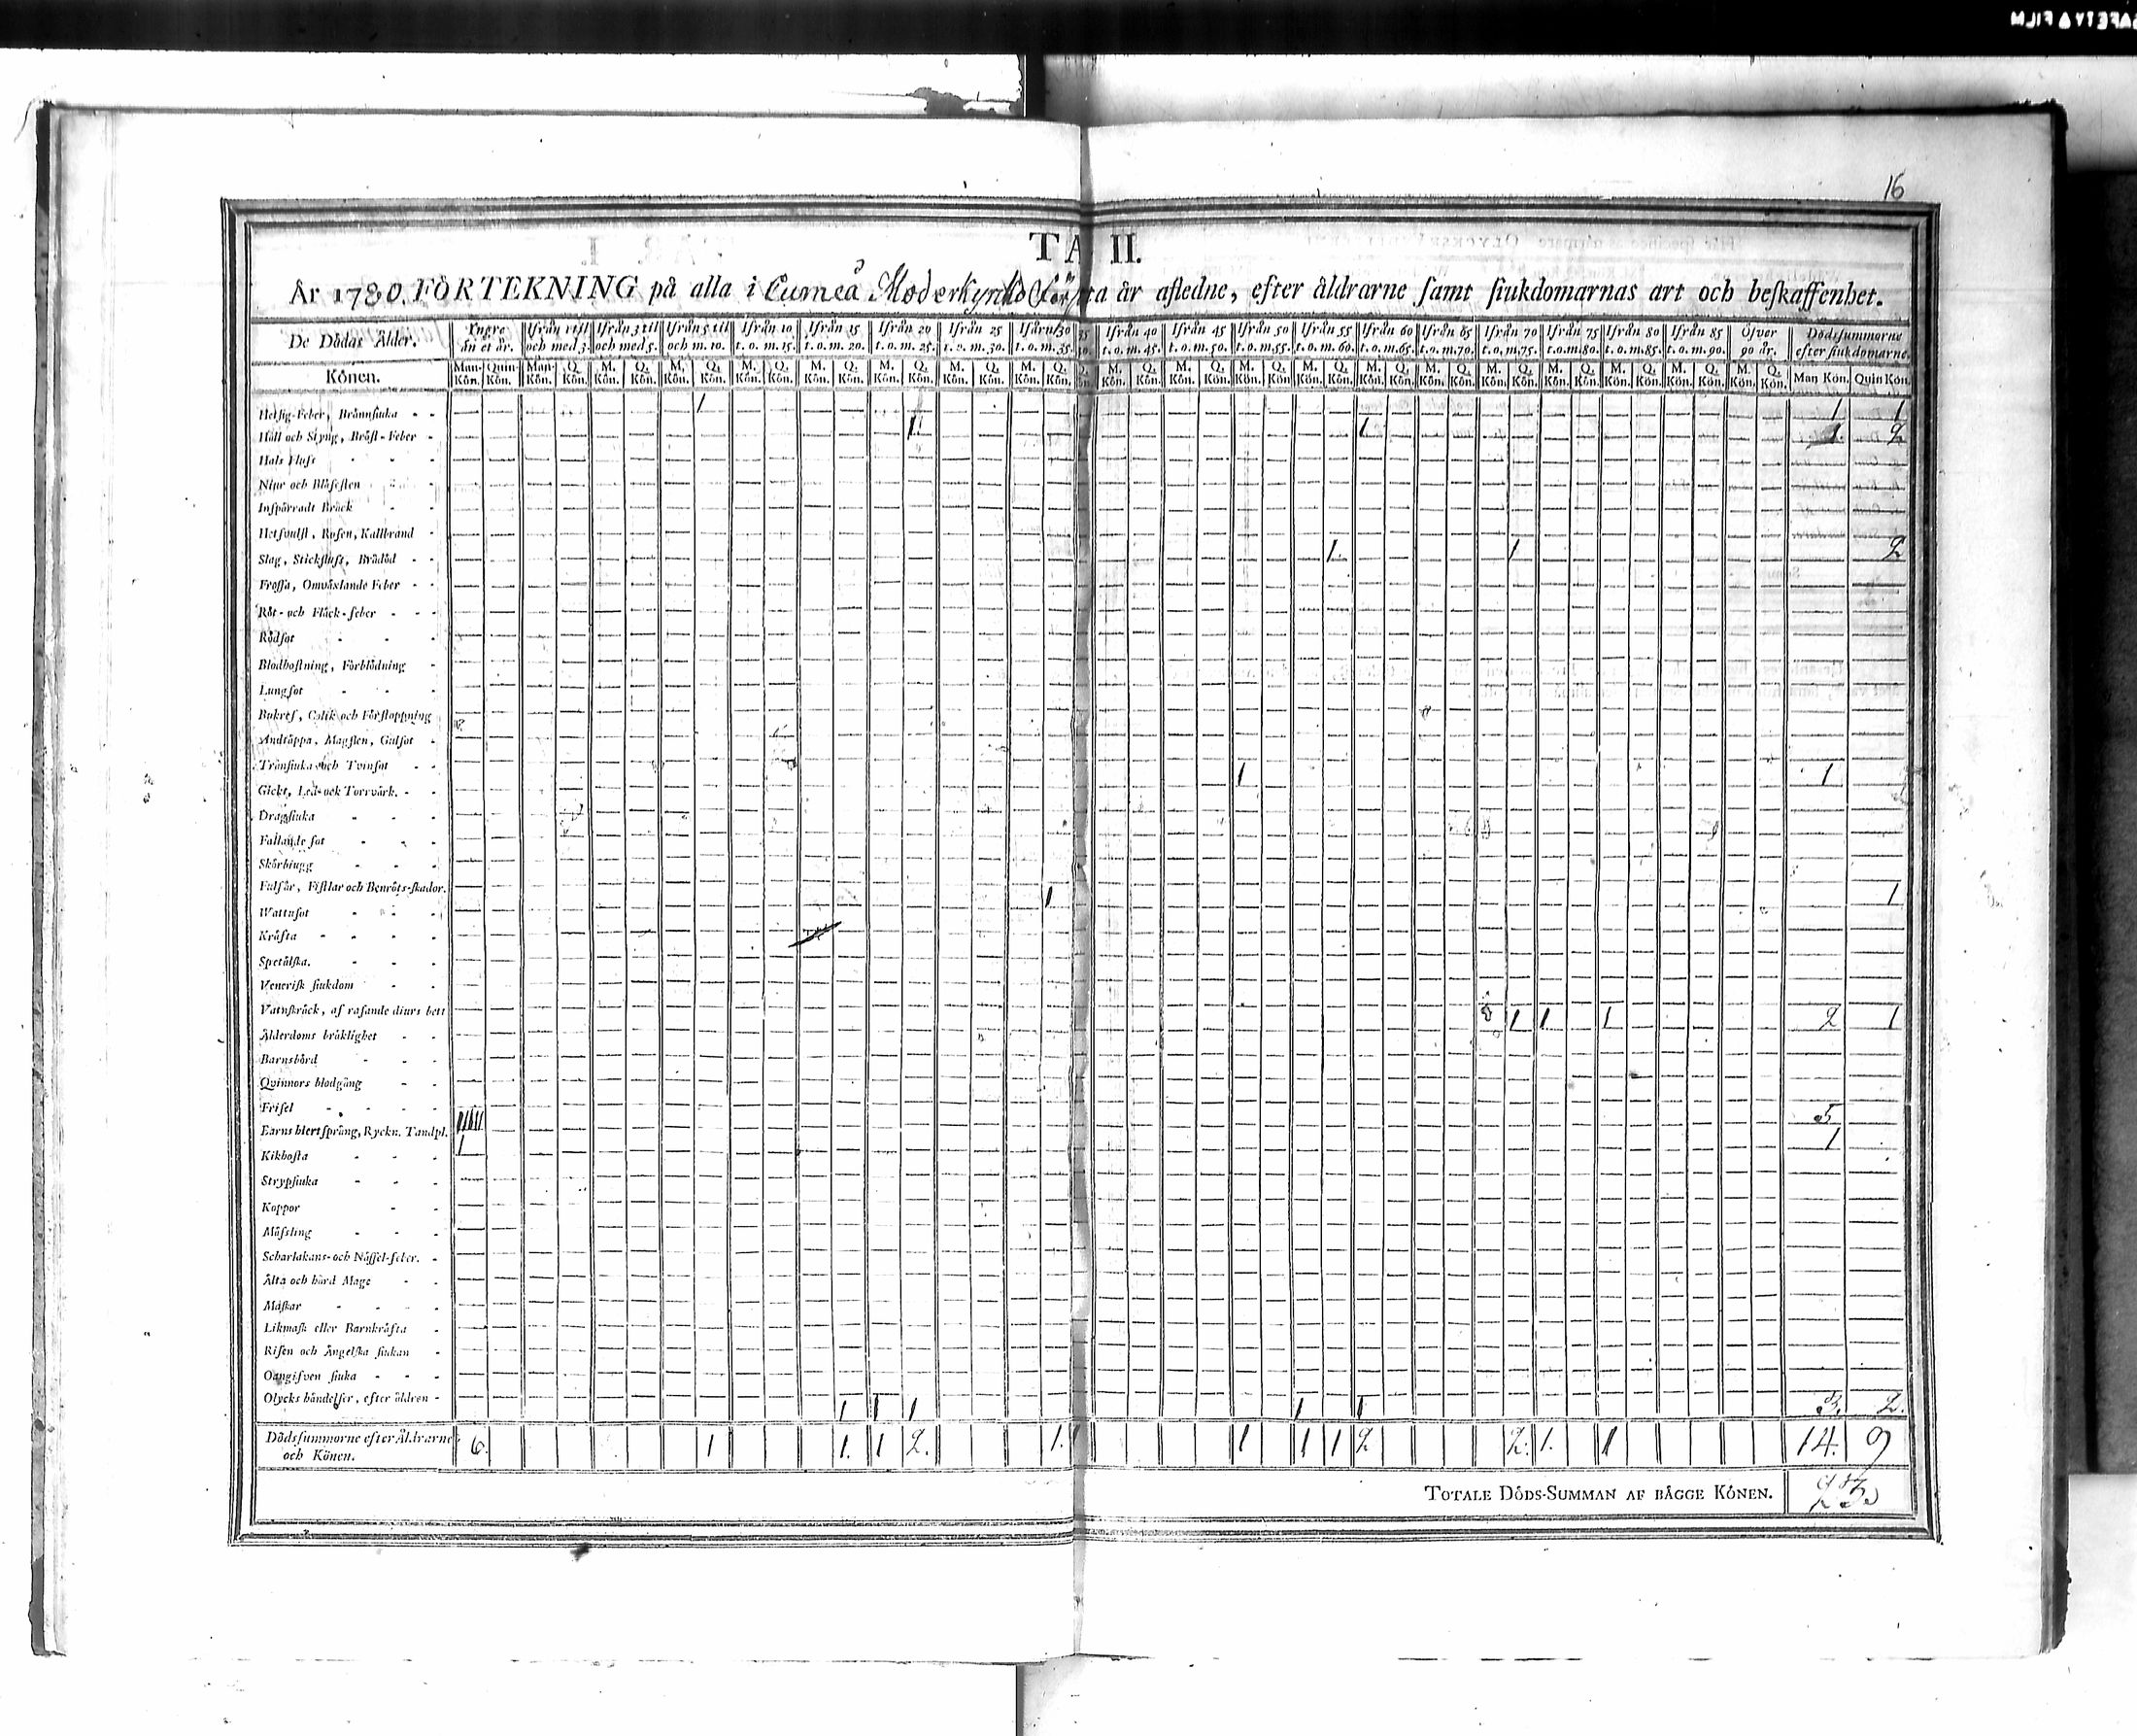 16
TA II.
År 1780. FÖRTEKNING på alla i Lumeå Moderkyrko är afledne, efter åldrarne samt siukdomarnas art och beskaffenhet.
De Dödas Ålder. Yngre än et år. Ifrån 1 till och med 3. Ifrån 3 til och med 5. Ifrån 5 til och m. 10. Ifrån 10 t. o. m. 15. Ifrån 15 t. o. m. 20. Ifrån 20 t. o. m. 25. Ifrån 25 t. o. m. 30. Ifrån 30 t. o. m. 35. Ifrån 40 t. o. m. 45. Ifrån 45 t. o. m. 50. Ifrån 50 t. o. m. 55. Ifrån 55 t. o. m. 60. Ifrån 60 t. o. m. 65. Ifrån 65 t. o. m. 70. Ifrån 70 t. o. m. 75. Ifrån 75 t. o. m. 80. Ifrån 80 t. o. m. 85. Ifrån 85 t. o. m. 90. Öfver 90 år. Dödssummorne efter siukdomarne.
Könen. Man-Kön. Quin-Kön. Man-Kön. Q. Kön. M. Kön. Q. Kön. M. Kön. Q. Kön. M. Kön. Q. Kön. M. Kön. Q. Kön. M. Kön. Q. Kön. M. Kön. Q. Kön. M. Kön. Q. Kön. M. Kön. Q. Kön. M. Kön. Q. Kön. M. Kön. Q. Kön. M. Kön. Q. Kön. M. Kön. Q. Kön. M. Kön. Q. Kön. M. Kön. Q. Kön. M. Kön. Q. Kön. M. Kön. Q. Kön. M. Kön. Q. Kön. M. Kön. Q. Kön. Man Kön. Quin Kön.
Hetsig-Feber, Brännsiuka 1 1 1
Håll och Styng, Bröst-Feber 1 1 1 2
Hals Fluss
Niur och Blåsesten
Inspärradt Bråck
Hetsvulst, Rosen, Kallbrand
Slag, Stickfluss, Brådöd 1 1 2
Frossa, Omväxlande Feber
Röt- och Fläck-feber
Rödsot
Blodhostning, Förblödning
Lungsot
Bukref, Colik och Förstoppning
Andtäppa, Magsten, Gulsot
Tränsiuka och Tvinsot 1 1
Gickt, Led- ock Torrvärk.
Dragsiuka
Fallande sot
Skörbiugg
Fulsår, Fistlar och Benröts-skador. 1 1
Wattusot
Kräfta
Spetälska.
Venerisk siukdom
Vatuskräck, af rasande diurs bett 1 1 1 2 1
Ålderdoms bräklighet
Barnsbörd
Qvinnors blodgång
Frisel
Barns hiertsprång, Ryckn. Tandpl. 11111 5
Kikhosta 1 1
Strypsiuka
Koppor
Mässling
Scharlakans- och Nässel-feber.
Älta och hård Mage
Maskar
Likmask eller Barnkräfta
Risen och Ängelska siukan
Oangifven siuka
Olycks händelser, efter åldren 1 1 1 1 1 3. 2.
Dödssummorne efter Åldrarne och Könen. 6. 1 1. 1 2. 1. 1 1 1 2 2. 1. 1 14. 9
TOTALE DÖDS-SUMMAN AF BÄGGE KÖNEN. 23